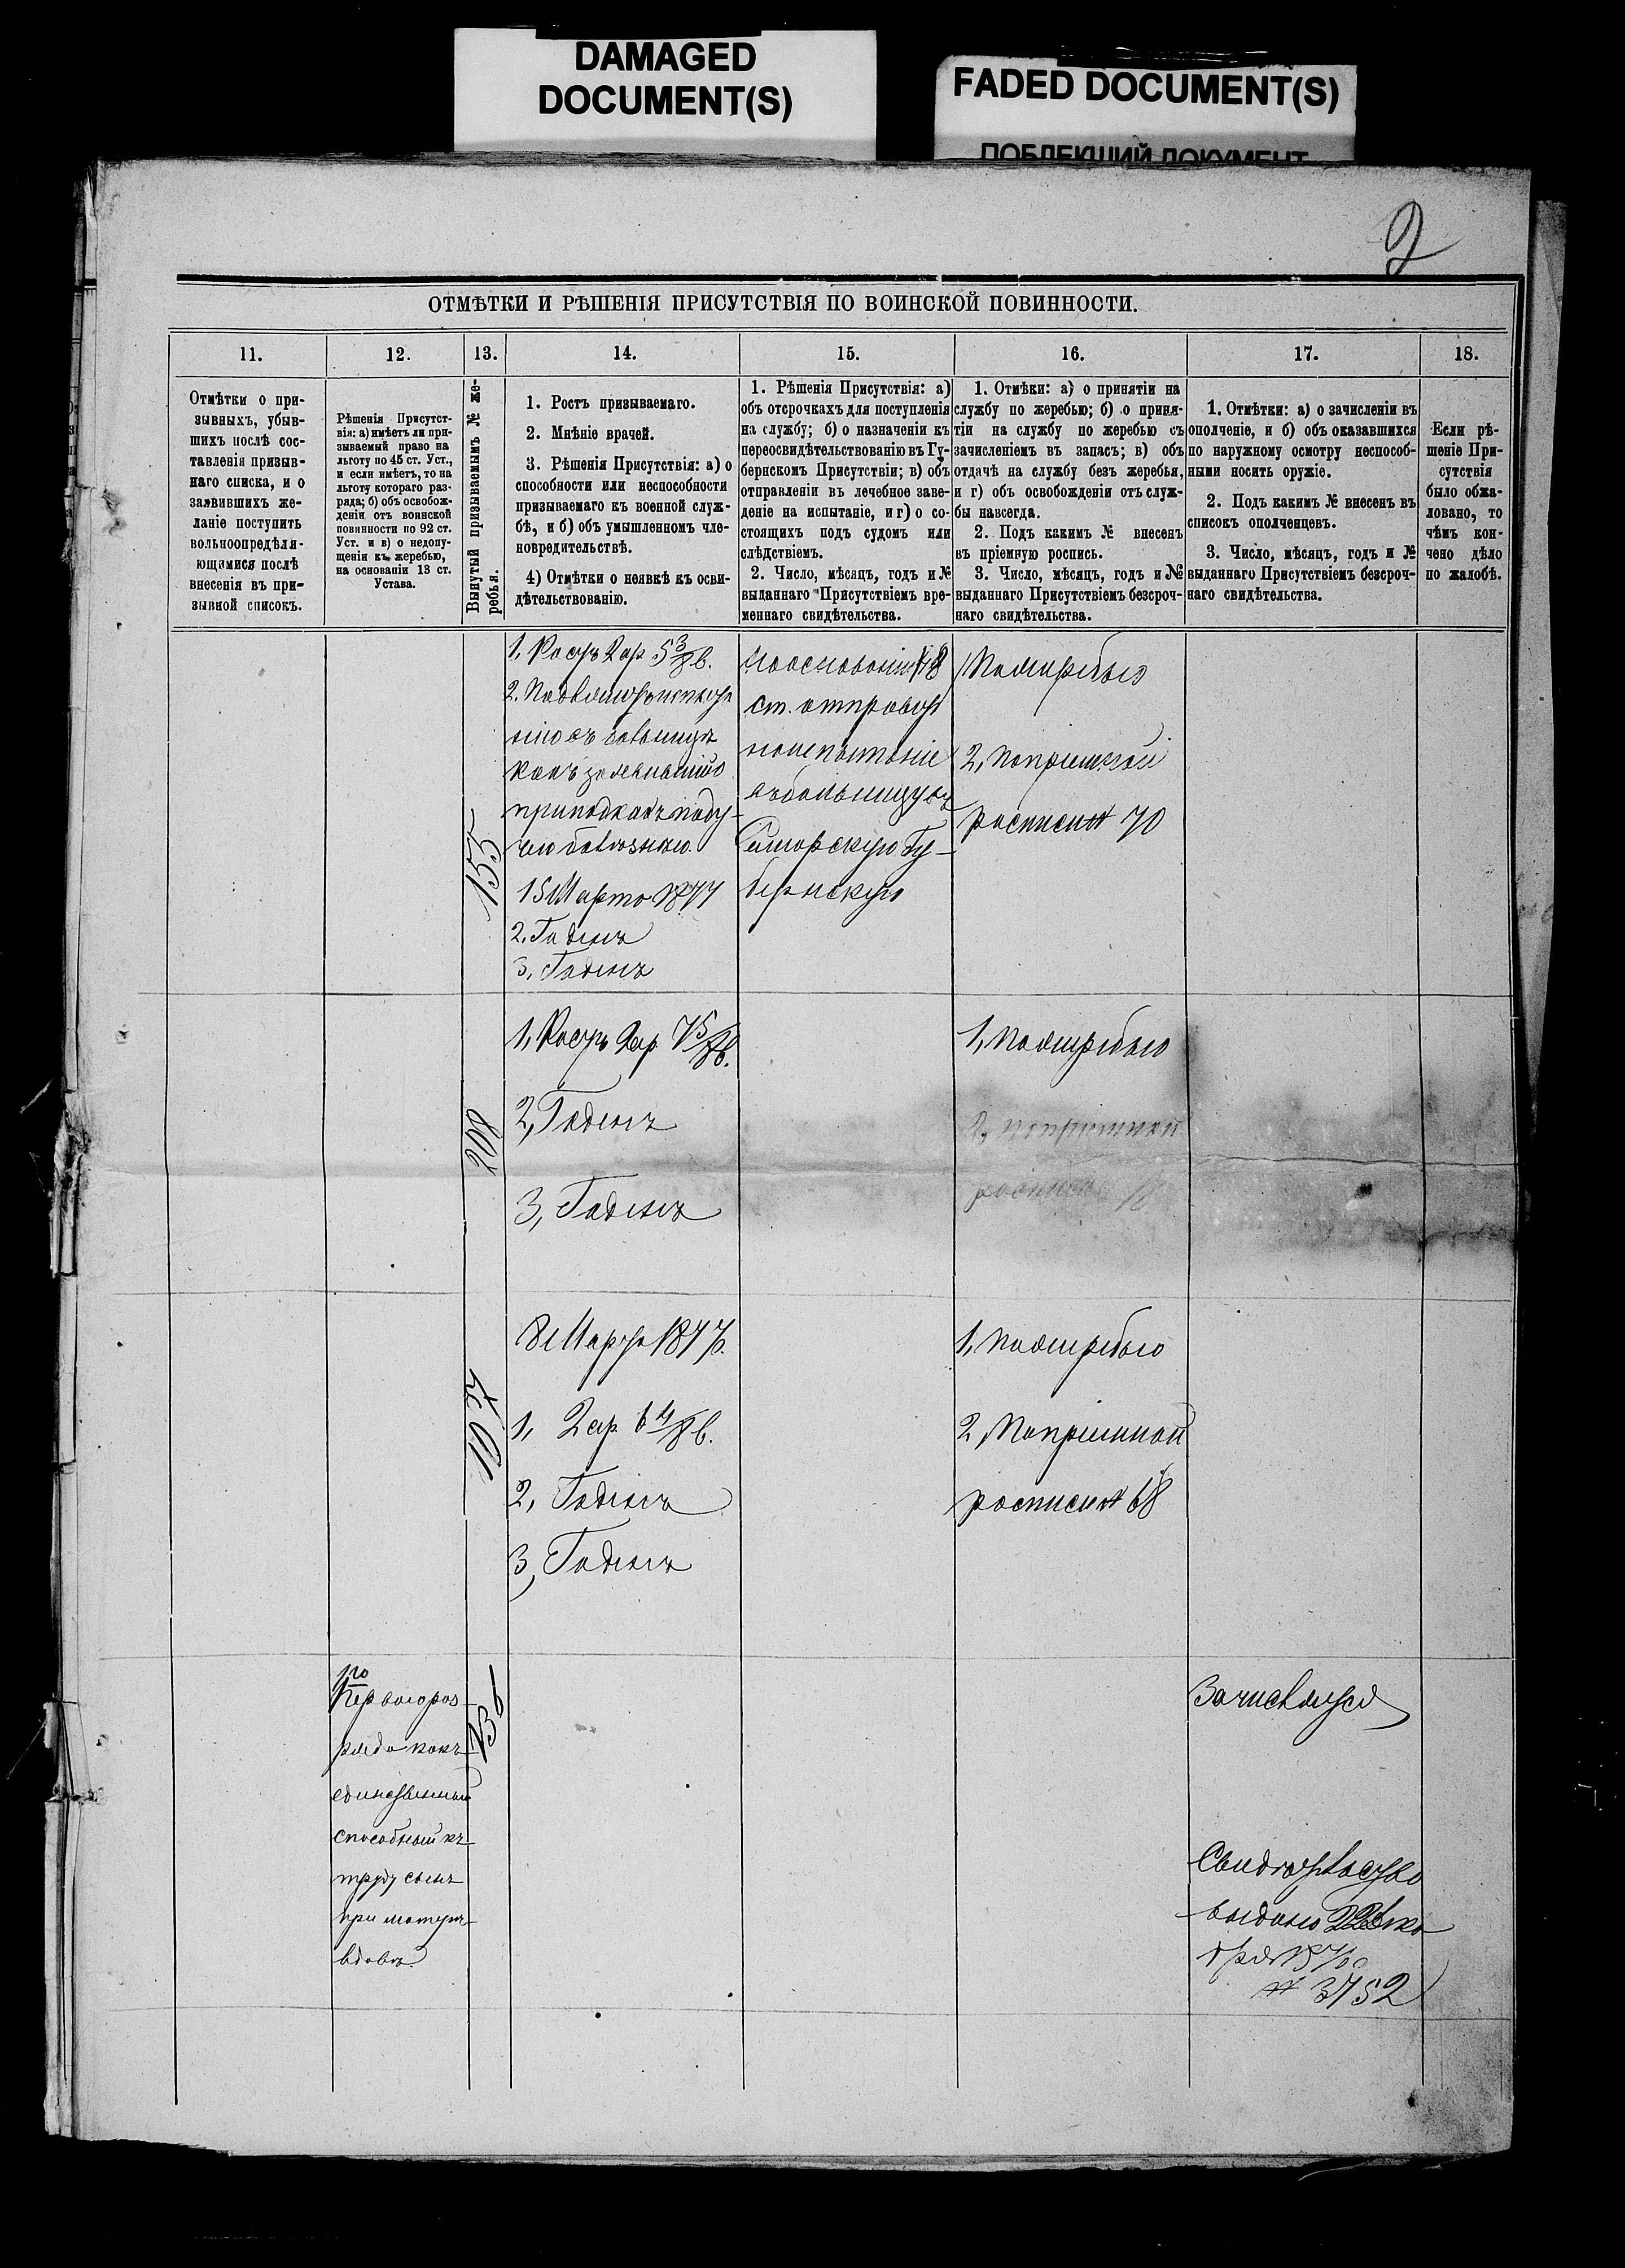 DAMAGED
DOCUMENT(S)
FADED DOCUMENT(S)
ПОБЛЕКШИЙ ДОКУМЕНТ
2
ОТМѢТКИ И РѢШЕНІЯ ПРИСУТСТВІЯ ПО ВОИНСКОЙ ПОВИННОСТИ.
11.
12.
13.
14.
15.
16.
17.
18.
Отмѣтки о при-
зывныхъ, убыв-
шихъ послѣ сос-
тавленія призыв-
наго списка, и о
заявившихъ же-
ланіе поступить
вольноопредѣля-
ющимися послѣ
внесенія въ при-
зывной списокъ.
Рѣшенія Присутст-
вія: а) имѣетъ ли при-
зываемый право на
льготу по 45 ст. Уст.,
и если имѣетъ, то на
льготу котораго раз-
ряда; б) объ освобож-
деніи отъ воинской
повинности по 92 ст.
Уст. и в) о недопу-
щеніи къ жеребью,
на основаніи 13 ст.
Устава.
Вынутый призываемымъ № же-
ребья.
1. Ростъ призываемаго.
2. Мнѣніе врачей.
3. Рѣшенія Присутствія: а) о
способности или неспособности
призываемаго къ военной служ-
бѣ, и б) объ умышленномъ чле-
новредительствѣ.
4) Отмѣтки о неявкѣ къ осви-
дѣтельствованію.
1. Рѣшенія Присутствія: а)
объ отсрочкахъ для поступленія
на службу; б) о назначеніи къ
переосвидѣтельствованію въ Гу-
бернскомъ Присутствіи; в) объ
отправленіи въ лечебное заве-
деніе на испытаніе, и г) о со-
стоящихъ подъ судомъ или
слѣдствіемъ.
2. Число, мѣсяцъ, годъ и №
выданнаго Присутствіемъ вре-
меннаго свидѣтельства.
1. Отмѣки: а) о принятіи на
службу по жеребью; б) о приня-
тіи на службу по жеребью съ
зачисленіемъ въ запасъ; в) объ
отдачѣ на службу безъ жеребья,
и г) объ освобожденіи отъ служ-
бы навсегда.
2. Подъ какимъ № внесенъ
въ пріемную роспись.
3. Число, мѣсяцъ, годъ и №
выданнаго Присутствіемъ безсроч-
наго свидѣтельства.
1. Отмѣтки: а) о зачисленіи въ
ополченіе, и б) объ оказавшихся
по наружному осмотру неспособ-
ными носить оружіе.
2. Подъ какимъ № внесенъ въ
списокъ ополченцевъ.
3. Число, мѣсяцъ, годъ и №
выданнаго Присутствіемъ безсроч-
наго свидѣтельства.
Если рѣ-
шеніе При-
сутствія
было обжа-
ловано, то
чѣмъ кон-
чено дѣло
по жалобѣ.
155
1, Ростъ 2 ар 5 3/8 в.
2. Подлежитъ испыта
нію въ больницѣ
какъ заявившій о
припадкахъ паду-
чею болѣзнью.
15 Марта 1877
2. Годенъ
3, Годенъ
На основаніи
ст. отправить
на испытаніе
въ больницу въ
Самарскую Гу-
бернскую
1 По жеребью
2, по пріемной
росписи № 70
208
1, Ростъ 2 ар 7 5/8 в.
2, Годенъ
3, Годенъ
1, По жеребью
2, по пріемной
росписи
107
8 Марта 1877.
1, 2 ар. 6 4/8 в.
2, Годенъ
3, Годенъ
1, По жеребью
2, По пріемной
росписи № 68
136
1го
Перваго раз-
ряда какъ
единственный
способный къ
труду сынъ
при матери
вдовѣ.
Зачисляется
Свидѣтельство
выдано 22 Дека
бря 1876 г.
№ 3752